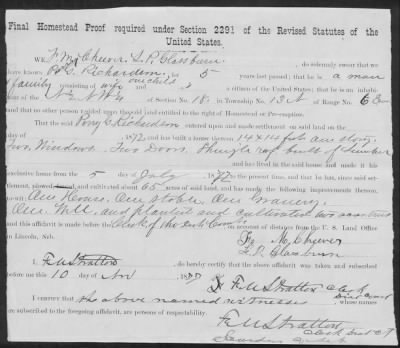 Final Homestead Proof required under Section 2291 of the Revised Statutes of the
United States.
WE, F. M. Cheever, L. P. Glassburn, do solemnly swear that we
have known P. G. Richardson for 5 years last passed; that he is a man
family consisting of wife one child, a citizen of the United States; that he is an inhabi-
tant of the N½ NW¼ of Section No. 18 in Township No. 13 N of Range No. 6 E
and that no other person resided upon said land entitled to the right of Homestead or Pre-emption.
That the said Perry G Richardson entered upon and made settlement on said land on the
day of 1872, has built a house thereon 14 x 14 feet one story
Two Windows Two Doors Shingle roof built of lumber
and has lived in the said house and made it his
exclusive home from the 5 day of July 1872 to the present time, and that he has, since said set-
tlement, plowed and cultivated about 65 acres of said land, and has made the following improvements thereon,
to-wit: One House, One stable, One Granary,
One Well, and planted and cultivated two
and this affidavit is made before the Clerk of the Dist Court on account of distance from the U. S. Land Office
in Lincoln, Neb.
F. M. Cheever
L. P. Glassburn
I, F M Stratton, do hereby certify that the above affidavit was taken and subscribed
before me this 10 day of Nov 1877
F M Stratton Clerk
Dist Court
I CERTIFY that the above named witnesses whose names
are subscribed to the foregoing affidavit, are persons of respectability.
F M Stratton
Clerk Dist Ct
Saunders